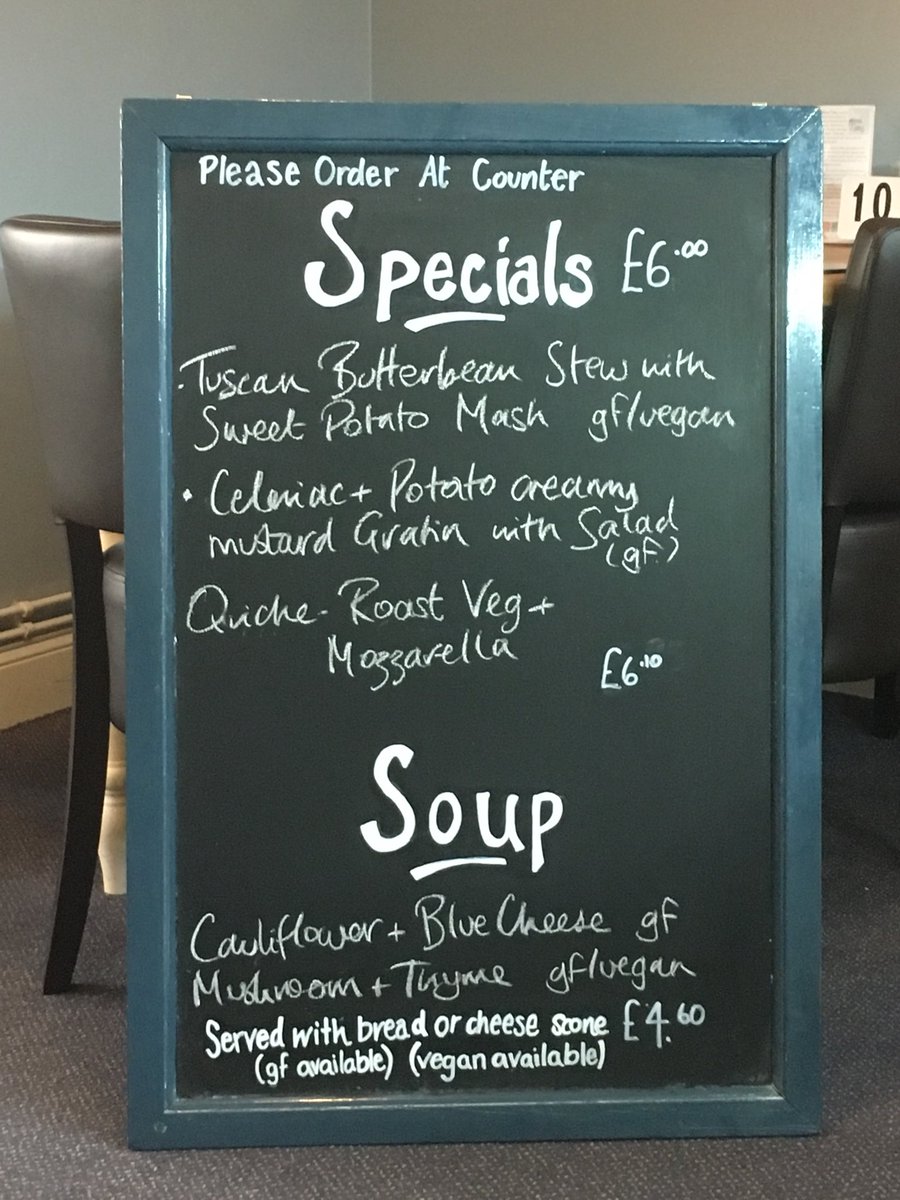 Please Order At Counter
Specials £6.00
10
• Tuscan Butterbean Stew with
Sweet Potato Mash gf/vegan
• Celeriac + Potato creamy
mustard Gratin with Salad
(gf)
Quiche - Roast Veg +
Mozzarella
£6.10
Soup
Cauliflower + Blue Cheese gf
Mushroom + Thyme gf/vegan
Served with bread or cheese scone £4.60
(gf available) (vegan available)